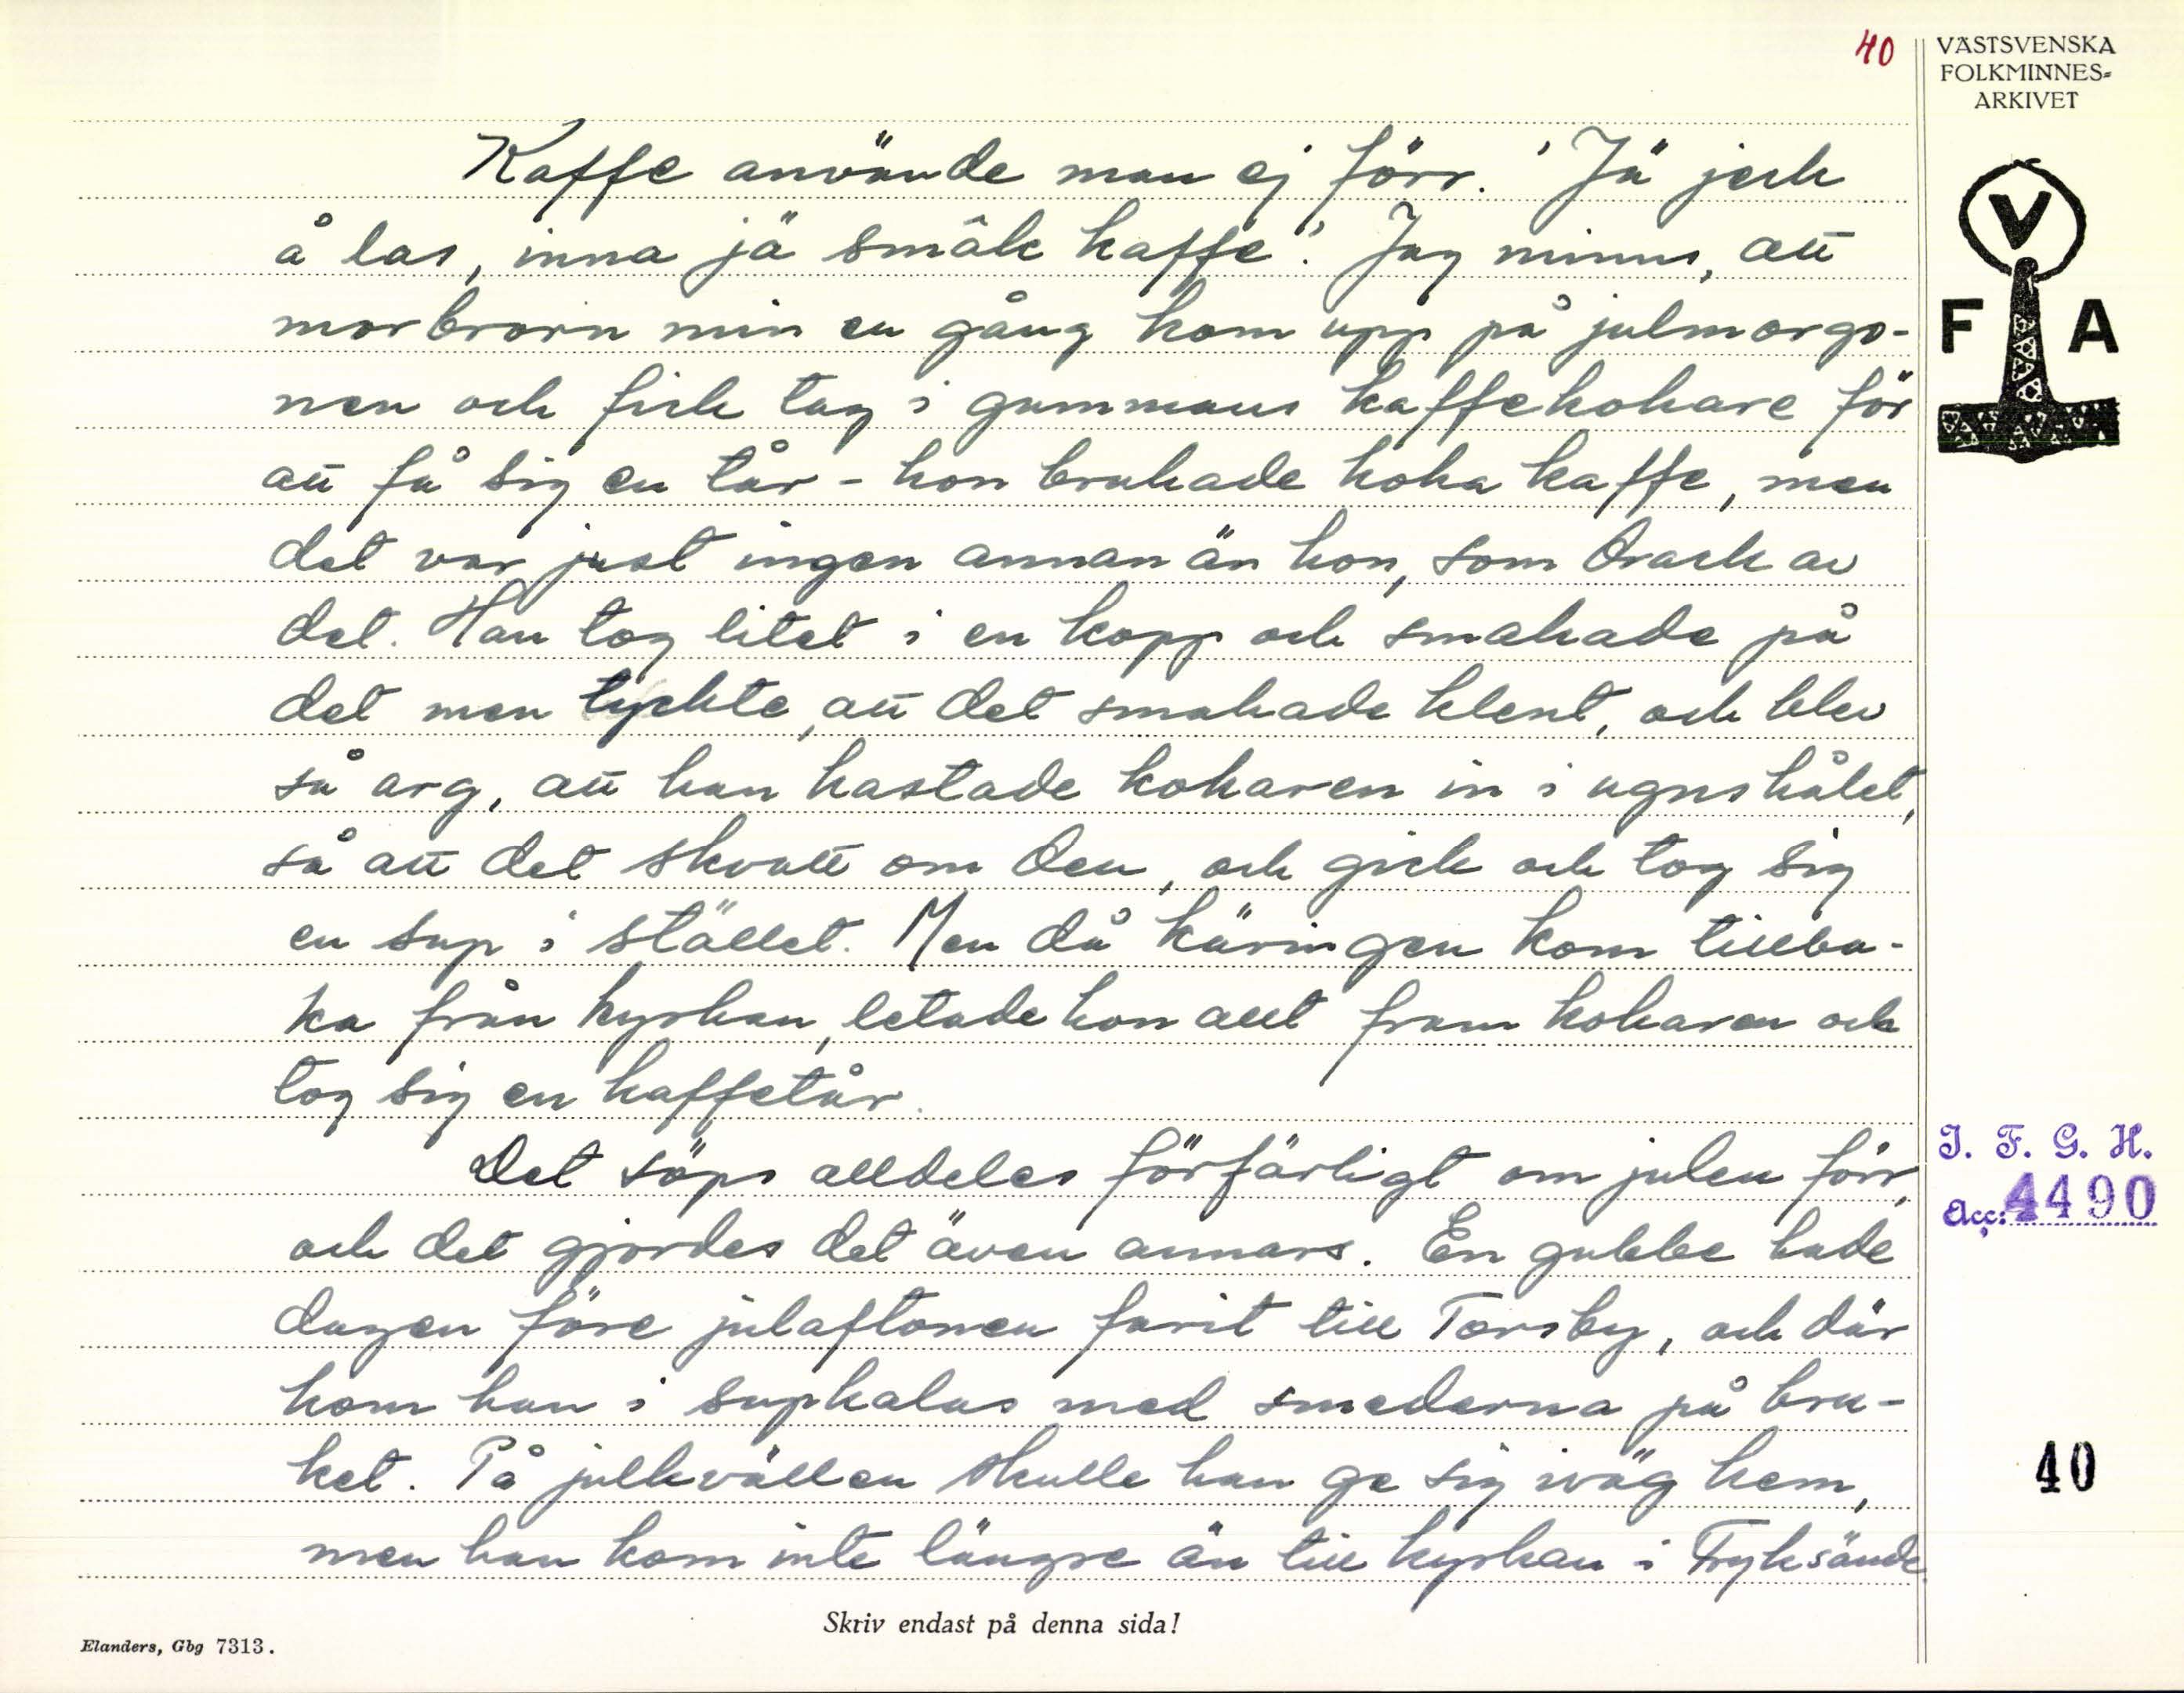 40
VÄSTSVENSKA
FOLKMINNES=
ARKIVET
Kaffe använde man ej förr. "Jä jeck
å las, inna jä smâk kaffe". Jag minns, att
morbrorn min en gång kom upp på julmorgo-
nen och fick tag i gummans kaffekokare för
att få sig en tår - hon brukade koka kaffe, men
det var just ingen annan än hon, som drack av
det. Han tog litet i en kopp och smakade på
det men tyckte, att det smakade klent, och blev
så arg, att han kastade kokaren in i ugnshålet,
så att det skvatt om den, och gick och tog sig
en sup i stället. Men då käringen kom tillba-
ka från kyrkan, letade hon allt fram kokaren och
tog sig en kaffetår.
Det söps alldeles förfärligt om julen förr,
och det gjordes det även annars. En gubbe hade
dagen före julaftonen farit till Torsby, och där
kom han i supkalas med smederna på bru-
ket. På julkvällen skulle han ge sig iväg hem,
men han kom inte längre än till kyrkan i Fryksände.
V
F A
I. F. G. H.
Acc: 4490
40
Skriv endast på denna sida!
Elanders, Gbg 7313.